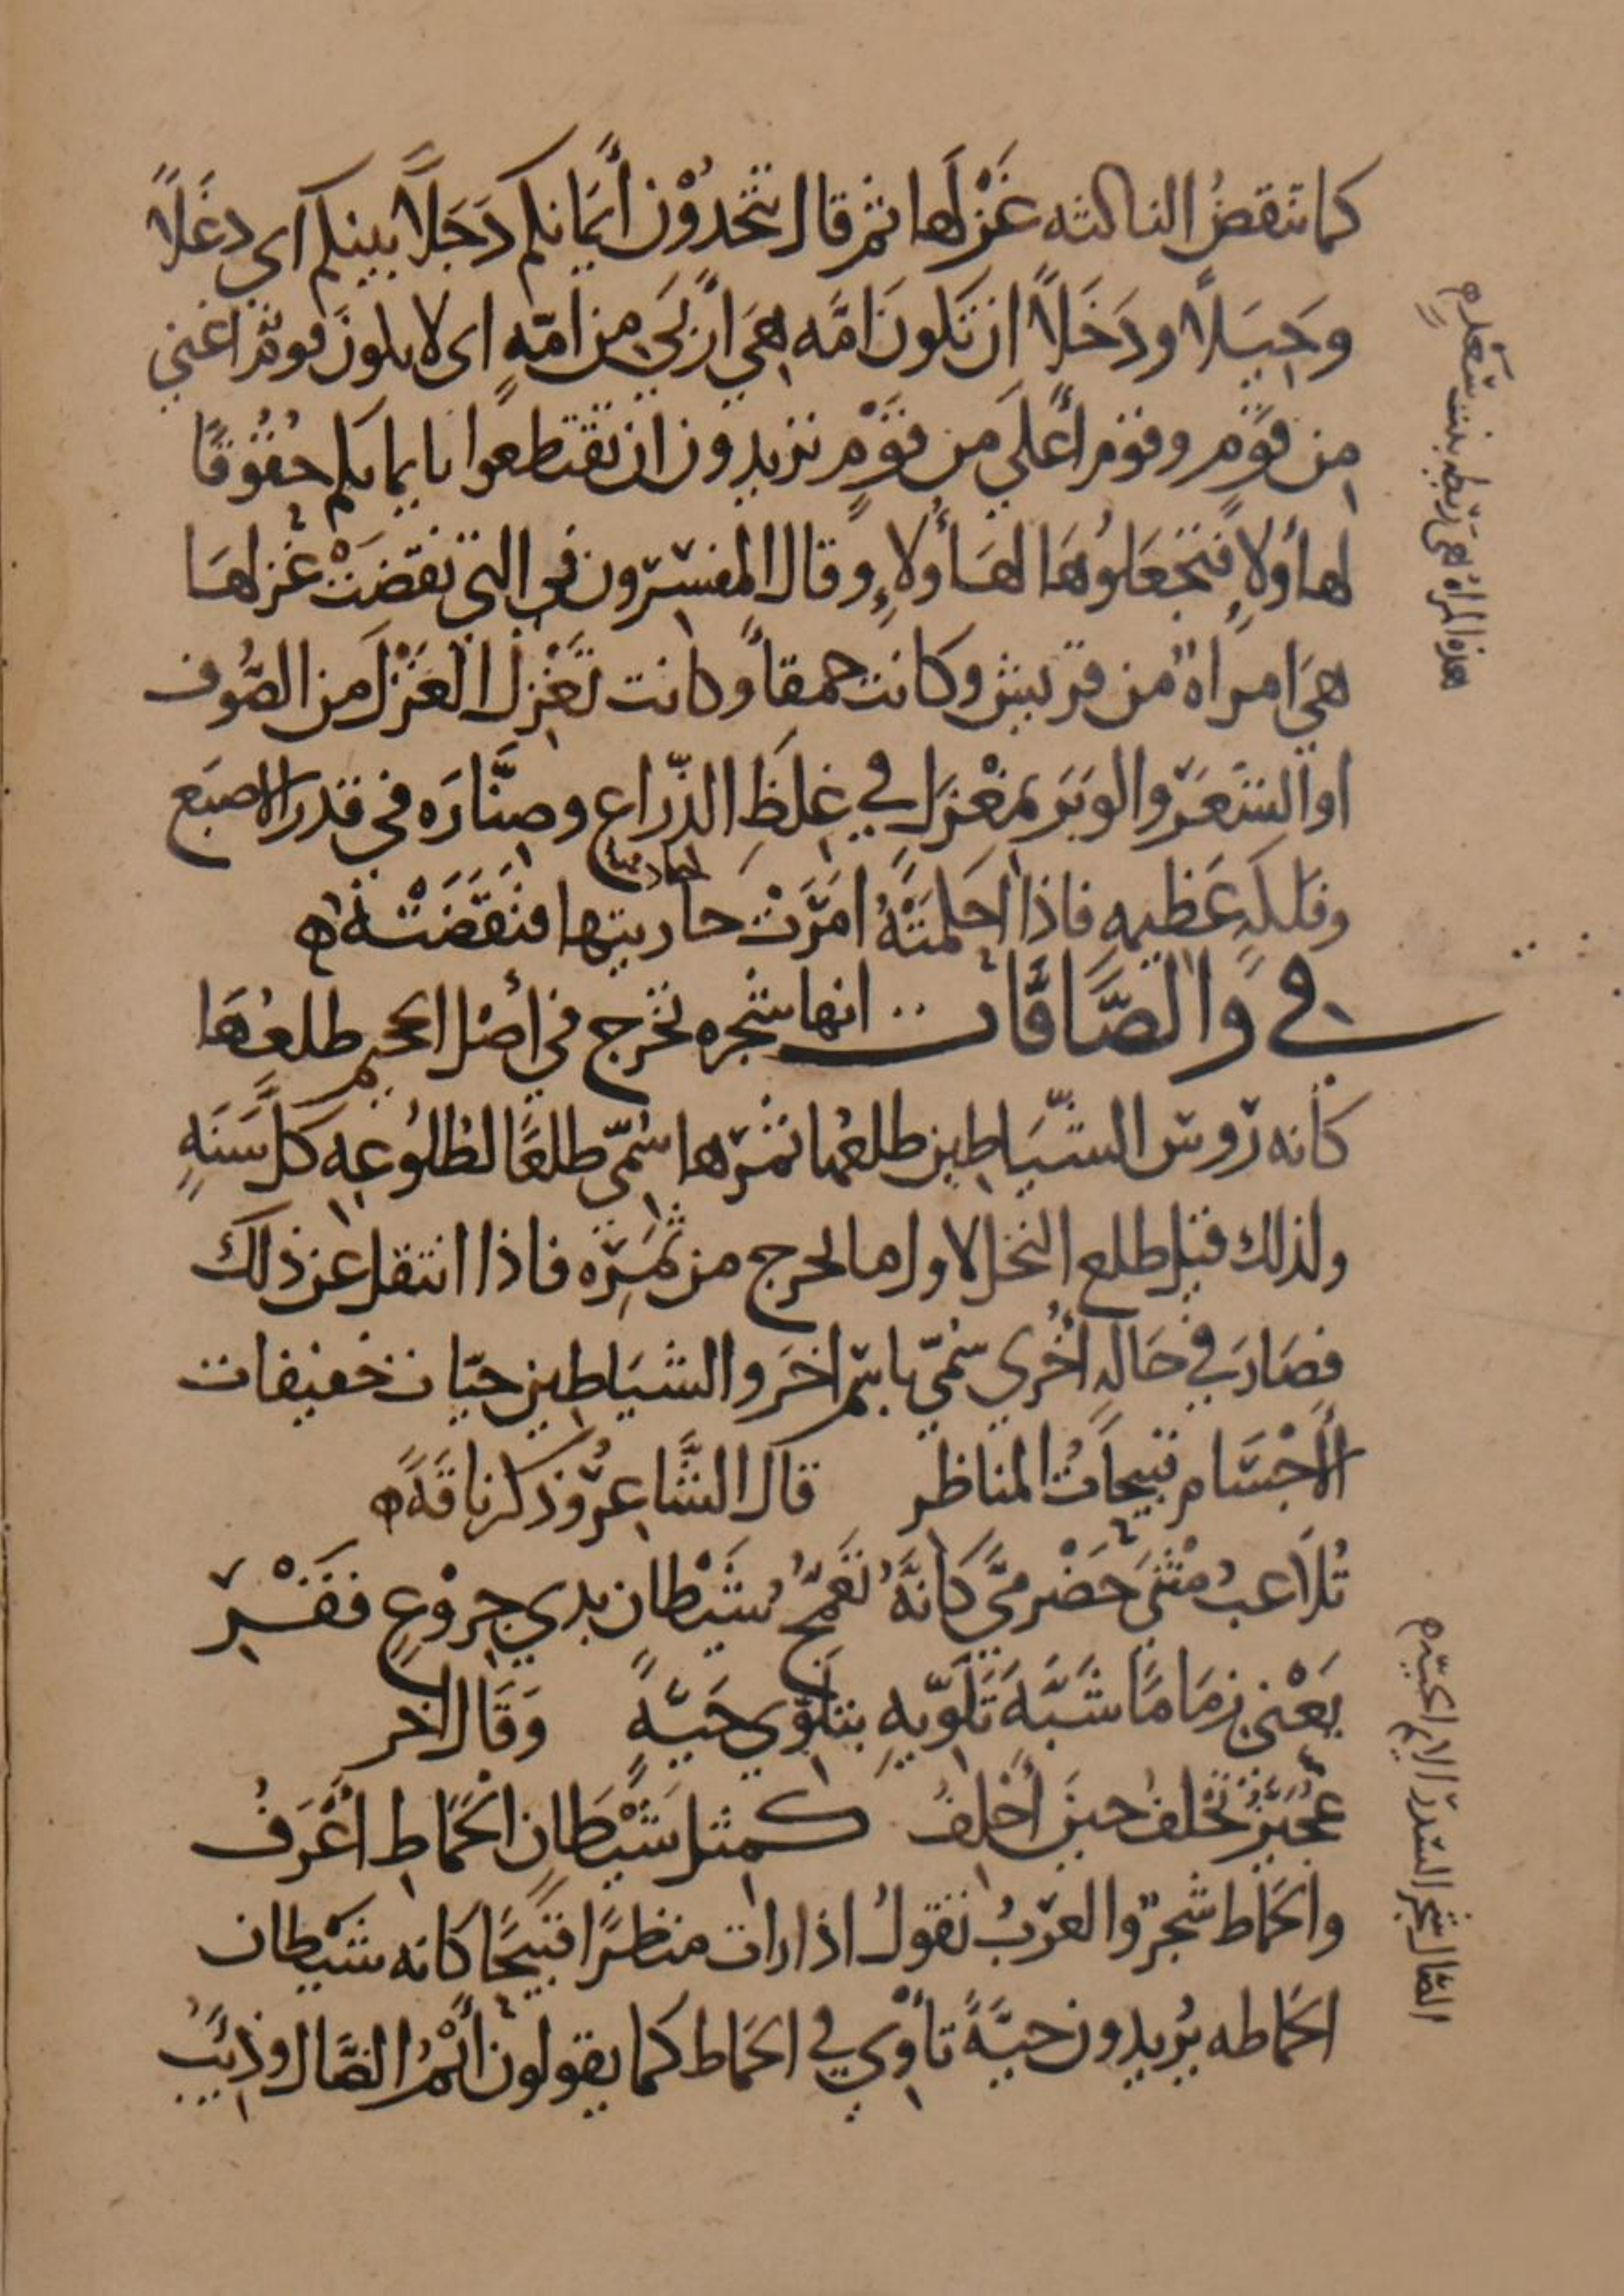 كما تنقض الناكثه غَزْلَها ثم قال تتخذُوْن أَيمَانكم دَخَلاً بينكم اى دغَلاً
وحِيَلاً ودَخَلاً ان تكونَ امَّه هِيَ اَرْبَي مِن امّهٍ اى لا يكونَ قومٌ اغني
مِن قَوْمٍ وقوم أَعْلَي من قَوْمٍ تريدون ان تقتطعوا بايمانكم حُقُوقًا
لهاؤلاءِ فتجعَلوُهَا لهَاؤُلاءِ وقال المفسّرون في التى نقضَتْ غزلهَا
هيَ امراةٌ من قريش وكانت حمقاً وكانت تَغْزِل الغَزْلَ من الصُّوف
او الشعَر والوبَر بمغْزَلٍ في غِلَظِ الذّراع وصِنَّارَه في قدر الاصبَع
وفلكهٍ عَظِيمهٍ فاذا احكمَتْهُ امَرَتْ جاريتها فنقَضَتْهُ
في والصَّافَّات انها شجره تخرج في أَصْل الجحيم طلعُهَا
كأنه رؤس الشّيَاطِين طلعُها ثمرها سُمّى طلعًا لطلُوعِهِ كلَّ سَنَهٍ
ولذلك قيل طلع النخل لاول ما يخرج من ثَمَرِه فاذا انتقل عن ذلك
فصَارَ في حَالهٍ أُخْري سُمّي باسْمٍ اخَر والشيَاطِين حيّات خفيفات
الأَجْسَام قبيحاتُ المناظر قال الشَّاعِرُ وذكر ناقَةً
تُلاَعبُ مَثْنَي حَضْرميٍّ كَأنَّهُ تَعَمُّجُ شَيْطان بذي خِرْوَعٍ قَفْرِ
يَعْني زِمَامًا شَبَّهَ تَلَوِّيهِ بتلَوّي حَيَّهٍ وَقَالَ اخر
عُجَيّزٌ تحْلفُ حينَ أَحْلِفُ كمثل شَيْطَانِ الحَمَاطِ أَعْرَفُ
والحَمَاط شجرٌ والعرَبُ تقولُ اذا رات منظرًا قبيحًا كانه شَيْطان
الحَمَاطه يُريدون حيَّةً تأْوي في الحَمَاط كما يقولون أَيْمُ الضَّال وذِئبُ
هذه المراة هى رَيْطه بنت سَعْد
الضال شجر السّدر الايم الحيّه